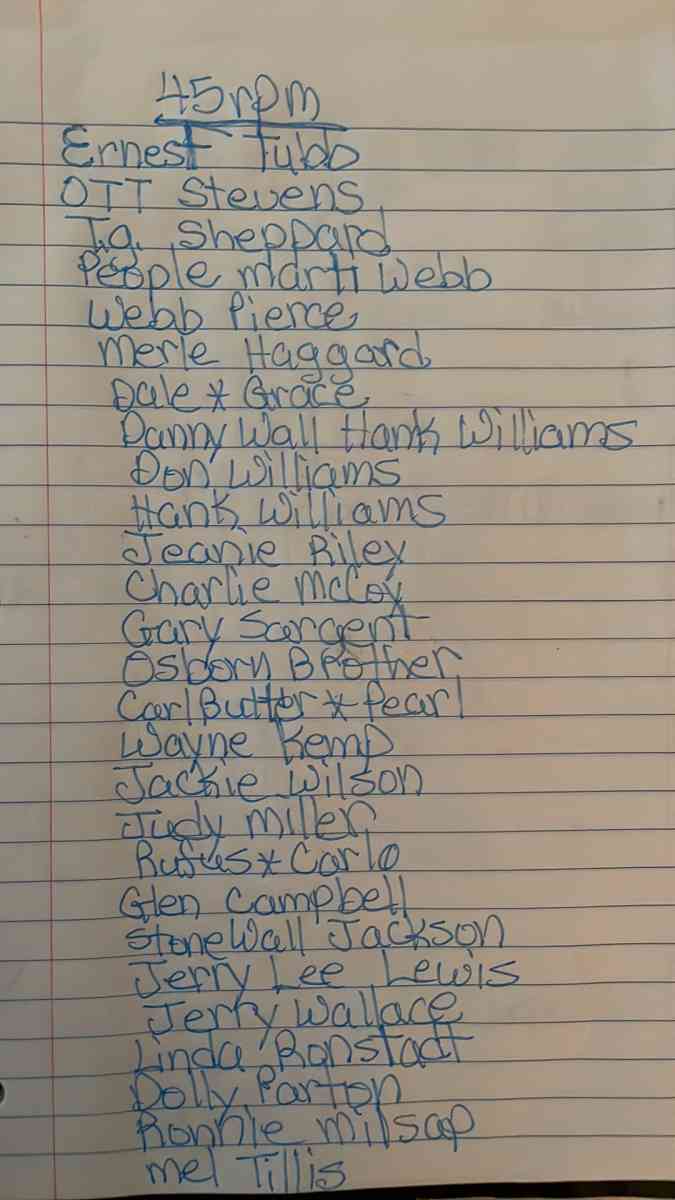 45rpm
Ernest Tubb
OTT Stevens
T.g. Sheppard
People marti Webb
Webb Pierce
Merle Haggard
Dale * Grace
Danny Wall Hank Williams
Don Williams
Hank Williams
Jeanie Riley
Charlie McCoy
Gary Sargent
Osborn Brother
Carl Butter * Pearl
Wayne Kemp
Jackie Wilson
Judy Miller
Rufus * Carlo
Glen Campbell
StoneWall Jackson
Jerry Lee Lewis
Jerry Wallace
Linda Ronstadt
Dolly Parton
Ronnie milsap
mel Tillis